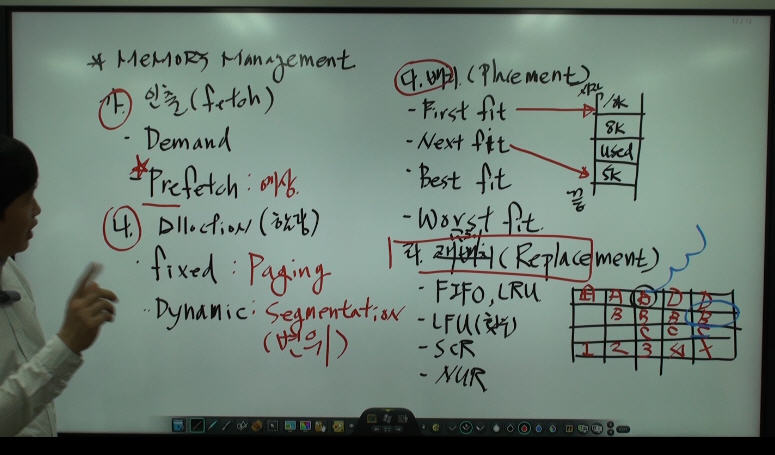 * MEMORY Management
가. 인출(fetch)
- Demand
- Prefetch : 예상.
나. Dlloction (할당)
· fixed : Paging
·· Dynamic : Segmentation
(범위)
다. 배치 (Placement)
- First fit
- Next fit
- Best fit
- Worst fit.
8K
used
5K
라. (Replacement)
- FIFO, LRU
- LFU (횟수)
- SCR
- NUR
A A B D D
B B B B
C C C
1 2 3 4